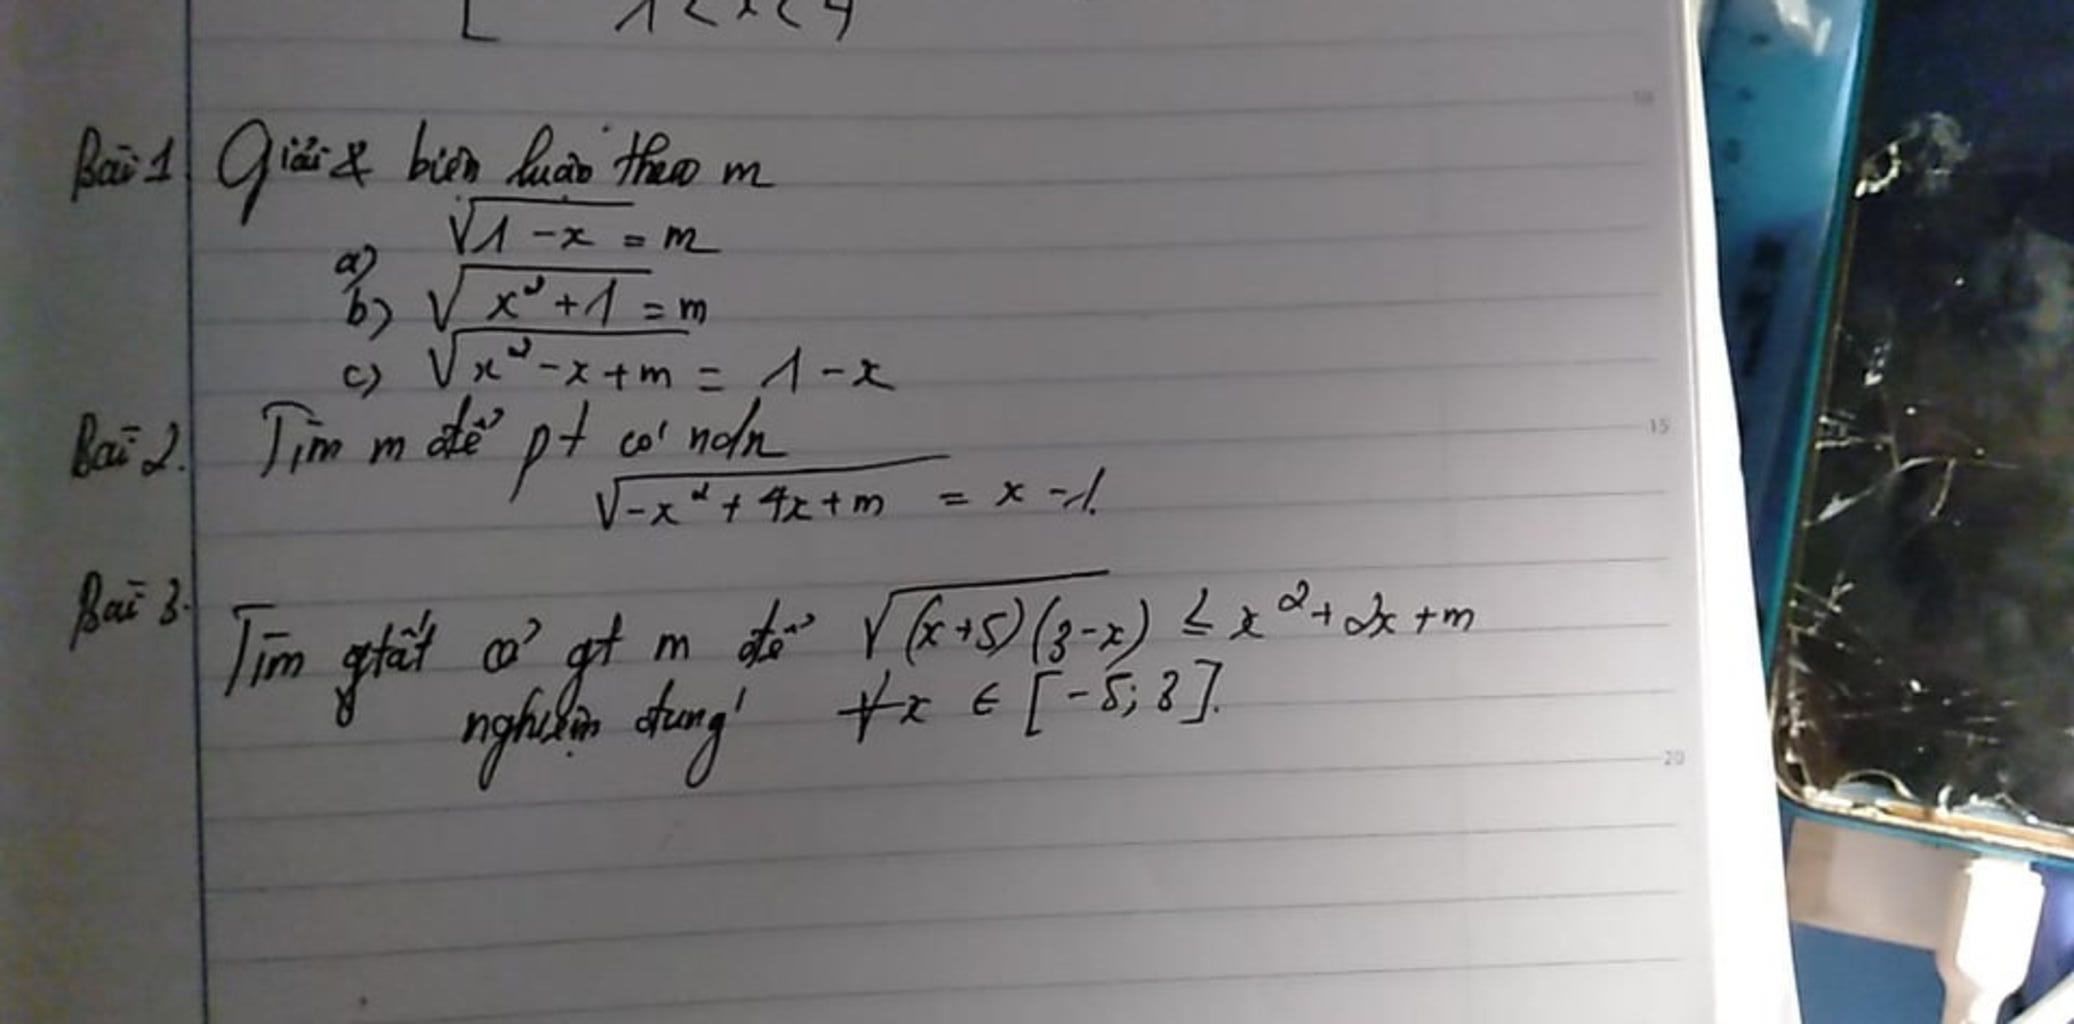 1 < x < 4
Bài 1 Giải & biện luận theo m
a) √1 - x = m
b) √x² + 1 = m
c) √x² - x + m = 1 - x
Bài 2. Tìm m để pt có ndn
√-x² + 4x + m = x - 1.
Bài 3. Tìm tất cả gt m để √(x+5)(3-x) ≤ x² + 2x + m
nghiệm đúng ∀x ∈ [-5; 3].
10
15
20